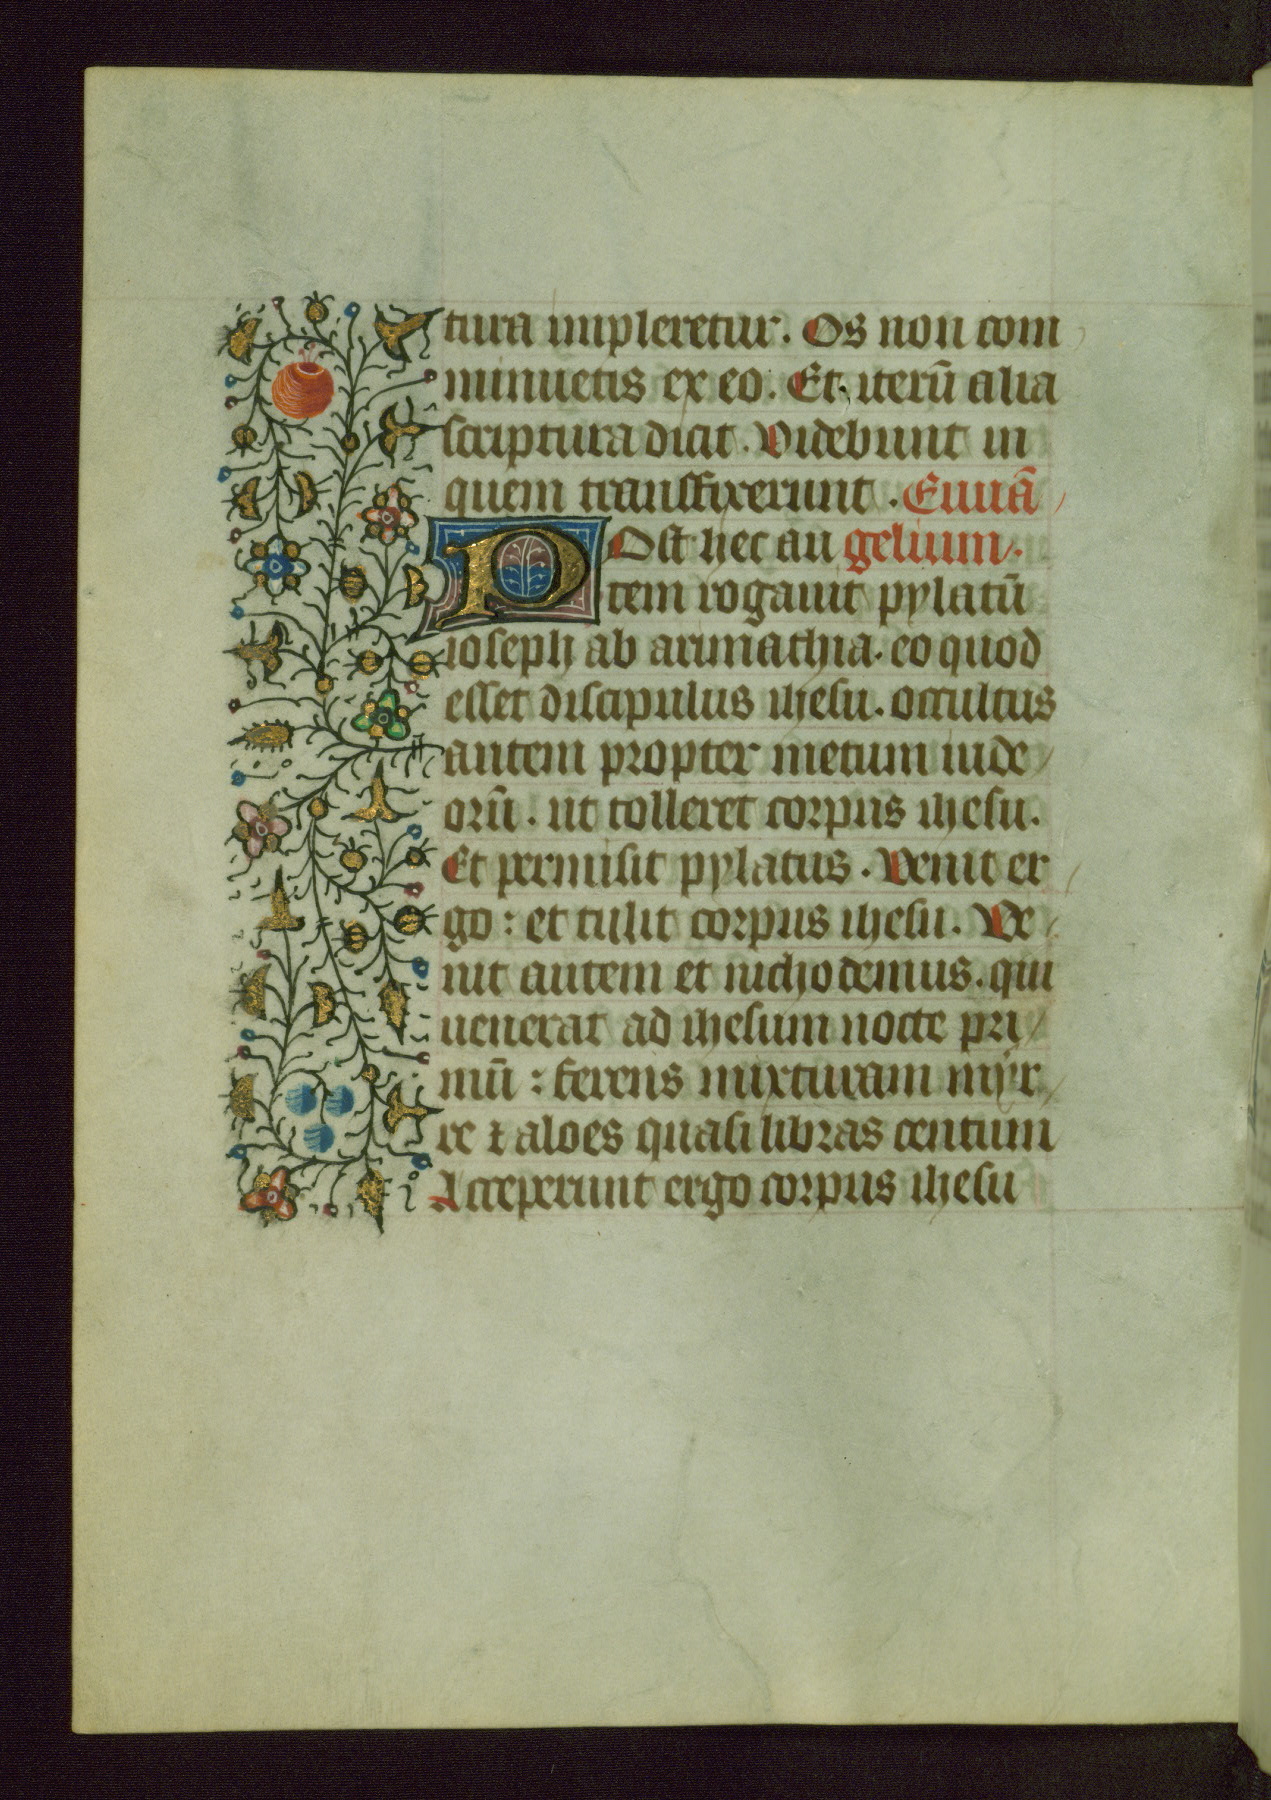 tura impleretur. Os non com
minuetis ex eo. Et iterũ alia
scriptura dicit. Videbunt in
quem transfixerunt. Euuã
Post hec au gelium.
tem rogauit pylatũ
ioseph ab arimathia. eo quod
esset discipulus ihesu. occultus
autem propter metum iude
orũ. ut tolleret corpus ihesu.
Et permisit pylatus. Venit er
go: et tulit corpus ihesu. Ve
nit autem et nichodemus. qui
uenerat ad ihesum nocte pri
mũ: ferens mixturam myr
re ⁊ aloes quasi libras centum
Acceperunt ergo corpus ihesu